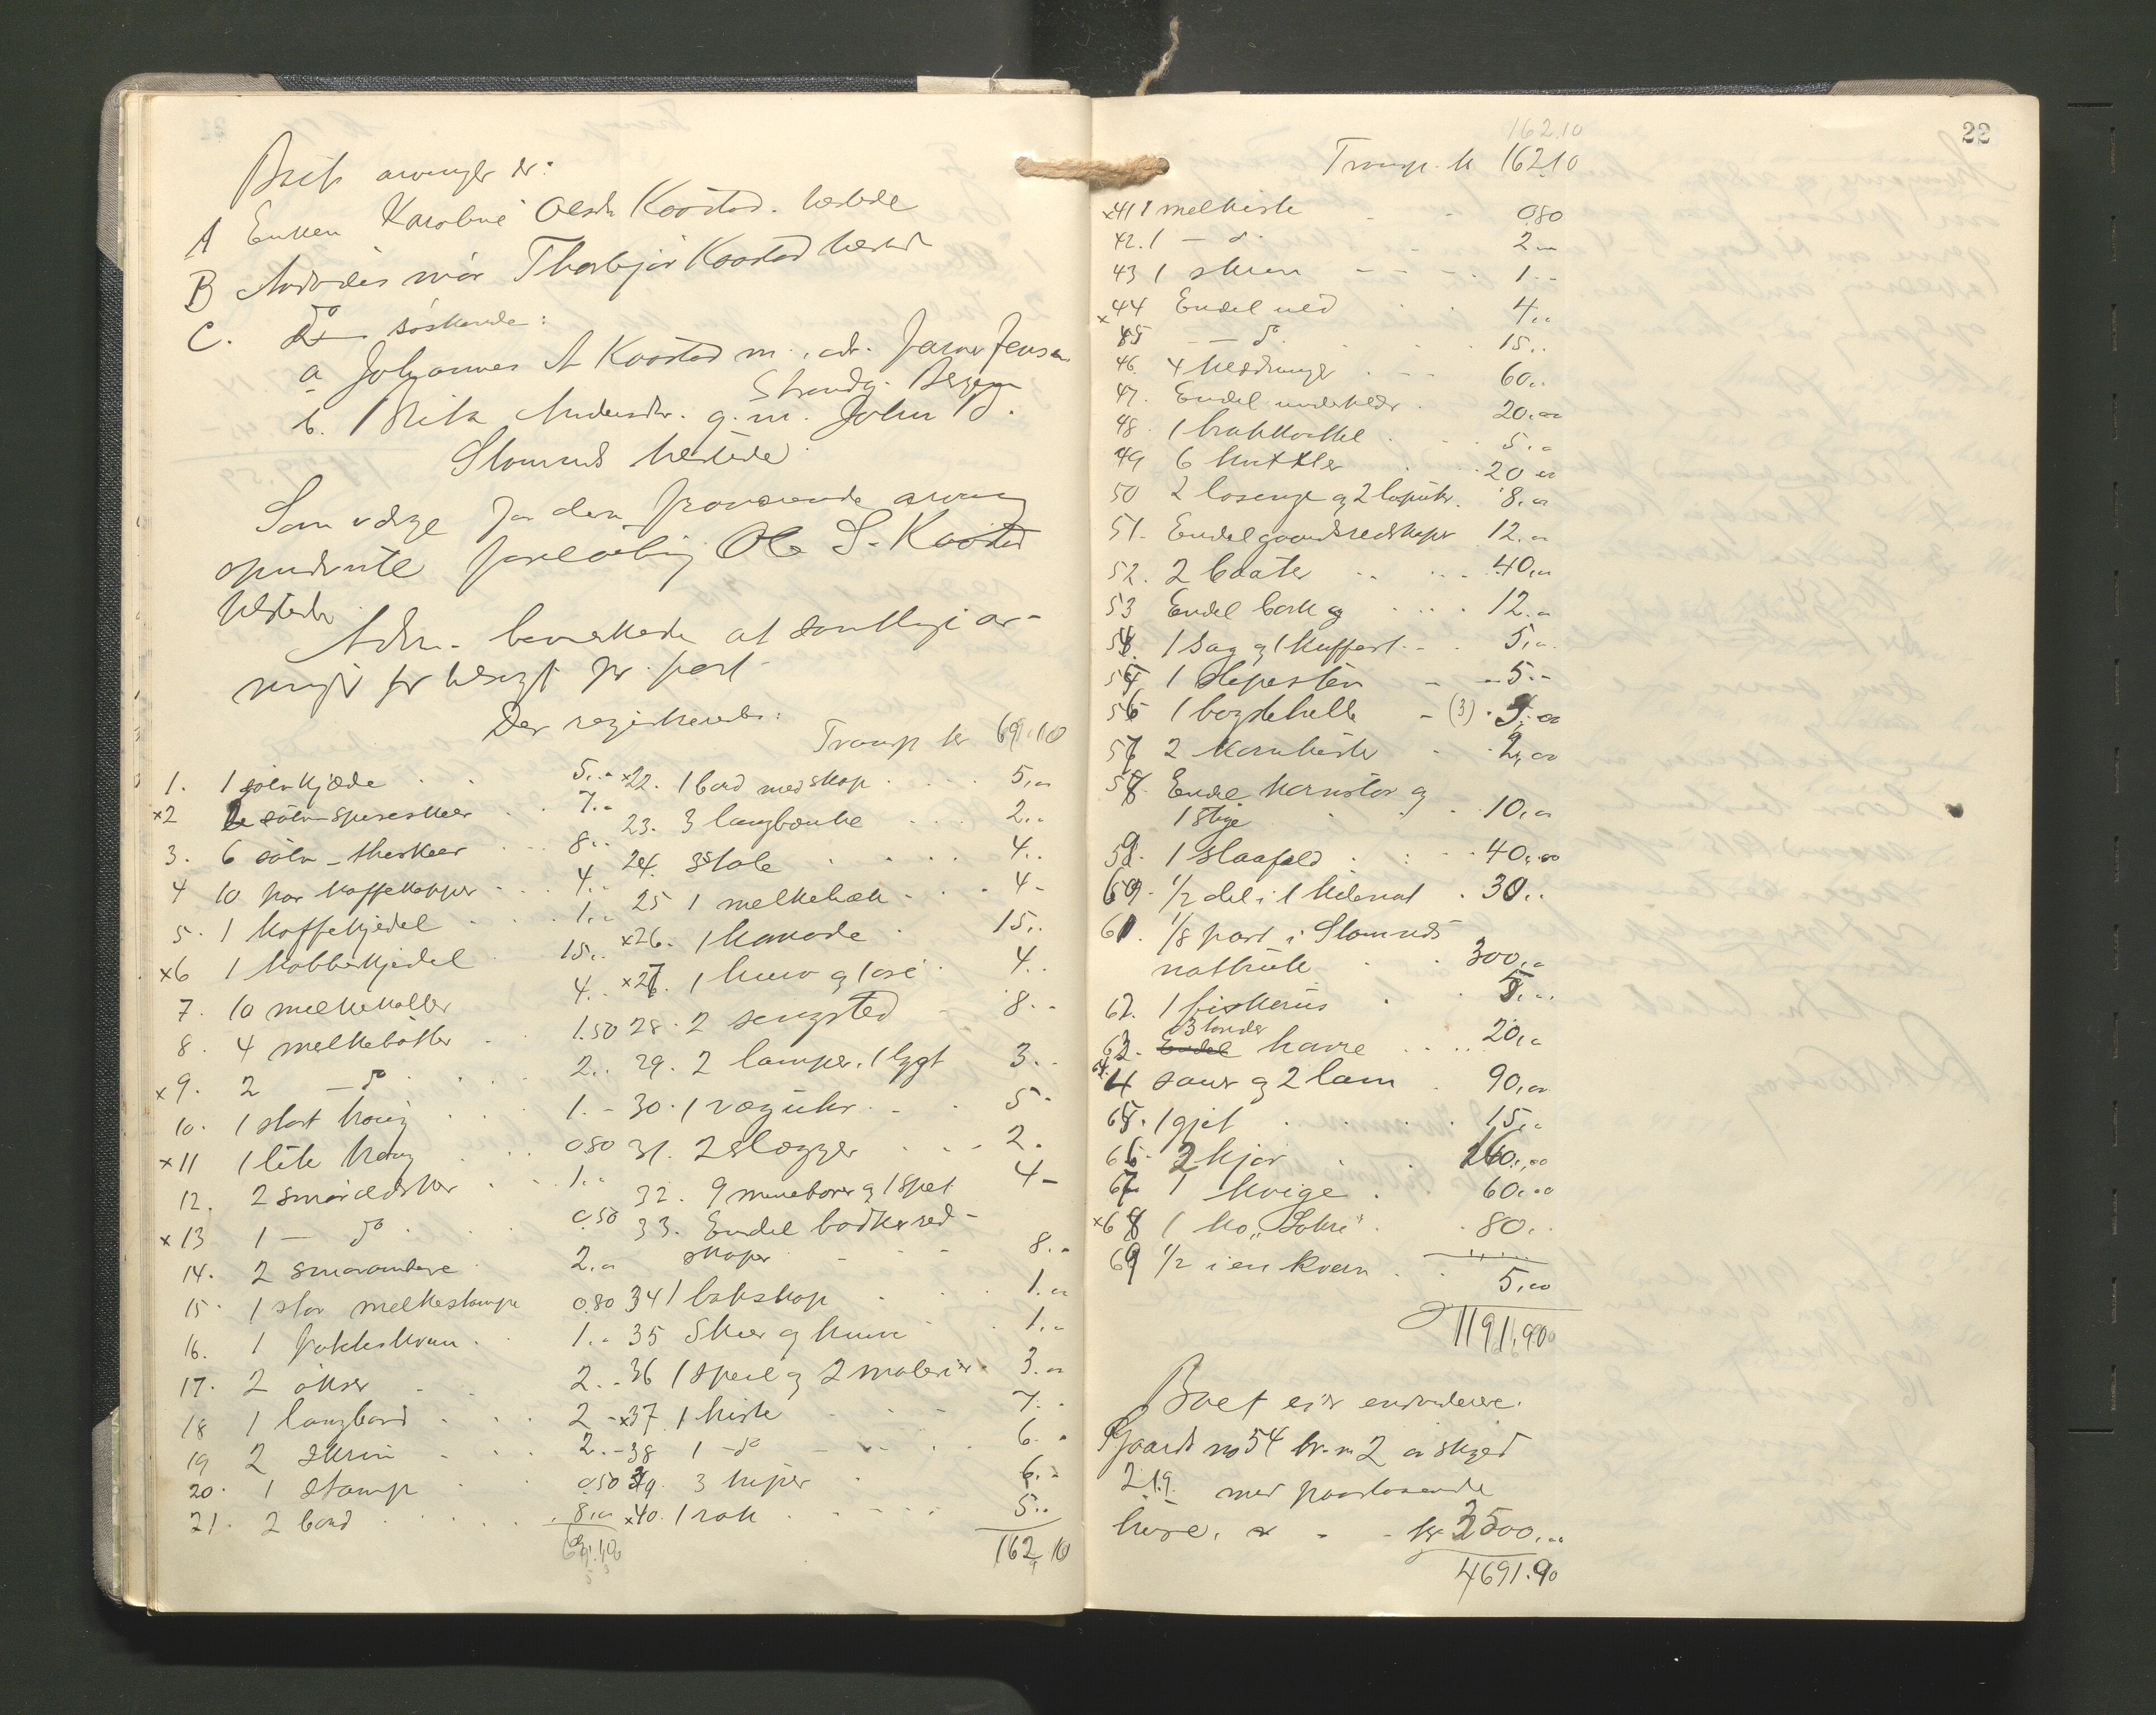 Boets arvinger er:
A Enken Karoline Olsdr Kaarstad. herstede
B Avdødes mor Thorbjør Kaarstad herst
C. do søskende:
a Johannes A Kaarstad m., adr. Jarner Jensen
Strandg. Bergen
b. Brita Andersdtr. g. m. John B.
Stomnes herstede
Som værge for den fraværende arving
opnævnte foreløbig Ole S. Kaarstad
herstede
Adm. bemerkede at samtlige ar-
vinger er tilsagt pr. post
Der registreredes:
Transp kr 69.10
1. 1 sølvkjæde 5.-
×2 2 sølv-spiseskeer 7.-
3. 6 sølv-theskeer 8.-
4 10 par kaffekopper 4.-
5. 1 kaffekjedel 1.-
×6 1 kobberkjedel 15.
7. 10 melkekoller 4.-
8. 4 melkebøtter 1.50
×9. 2 - do 2..
10. 1 stort traug 1.-
×11 1 lite traug 0.80
12. 2 smøræsker 1.-
×13 1 - do 0.50
14. 2 smørambere 2.-
15. 1 stor melkestampe 0.80
16. 1 1.-
17. 2 økser 2.-
18 1 langbord 2-
19 2 skrin 2.-
20. 1 stamp 0.50
21. 2 bord 8.00
69.10
×22. 1 bord med skap 5.00
23. 3 langbænke 2..
24. 3 stole 4..
25 1 melkebænk 4-
×26. 1 komode 15..
×27. 1 4..
28. 2 sengsted 8.-
29. 2 lamper, 1 lygt 3.-
30. 1 væguhr 5-
31. 2 slægger 2.
32. 9 mineborer og 1 spet 4-
33. Endel bødkerred-
skaper 8.-
34 1 1.00
35 Skeer og knive 1.-
36 1 speil og 2 malerier 3.00
×37. 1 kiste 7.-
38 1 - do 6.-
39. 3 kiper 6.-
×40. 1 rok 5..
162.10
22
162.10
Transp. kr 162.10
×41 1 melkiste 0.80
42. 1 - do 2.00
43 1 skrin 1.-
×44 Endel ved 4..
45 - do 15..
46. 4 klædninger 60..
47. Endel underklær 20.00
48. 1 5.00
49 6 20.00
50 2 og 2 8.00
51. Endel gaardsredskaper 12.00
52. 2 baater 40.00
53 Endel bork og 12.00
54. 1 Sag og 1 kuffert 5.00
55 1 slipesten 5.-
56 1 (3) 5.00
57 2 kornkister 2.00
58 Endel kornstør og
1 stige 10.00
59. 1 slaafæld 40.00
60. 1/2 del i 1 sildenot 30..
61. 1/8 part i Stomnes
notbruk 300.00
62. 1 fiskerus 5...
63. 3 tønder havre 20.00
64. 4 sauer og 2 lam 90.00
65. 1 gjet 15.00
66. 2 kjør 160.00
67. 1 kvige 60.00
×68 1 ko „Sokri" 80..
69 1/2 i en kvern 5.00
1191.90
Boet eier endvidere.
Gaards no 54 br. n 2 av skyld
2.19. med paastaaende
huse, kr 3500...
4691.90